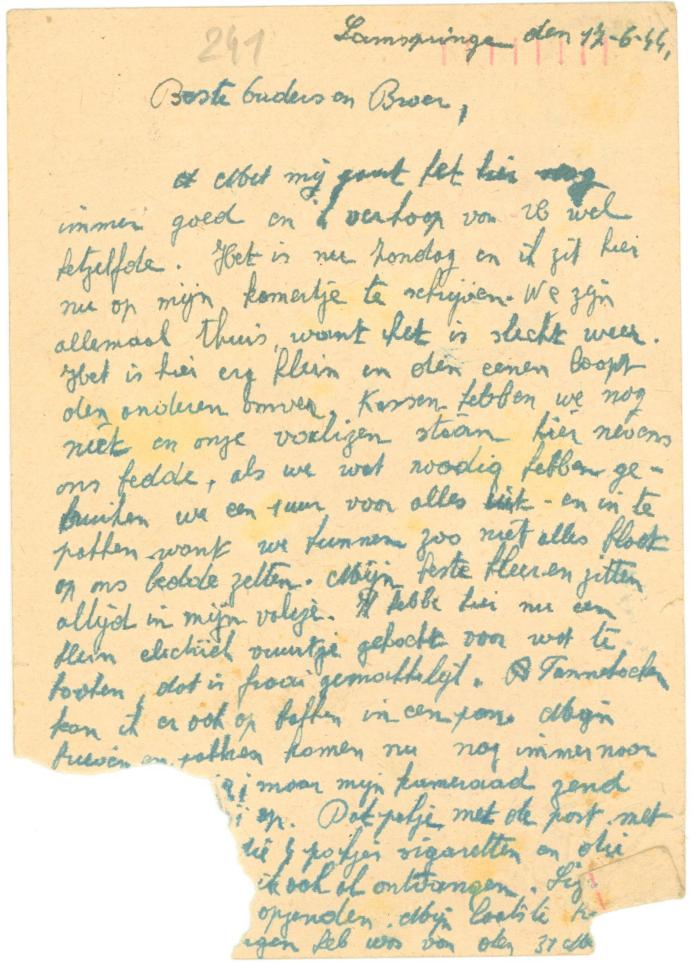 241
Lamspringe den 17-6-44,
Beste Ouders en Broer,
Met mij gaat het hier nog
immer goed en ik verhoop van U wel
hetzelfde. Het is nu zondag en ik zit hier
nu op mijn kamertje te schrijven. We zijn
allemaal thuis, want het is slecht weer.
Het is hier erg klein en den eenen loopt
den anderen omver. Kassen hebben we nog
niet en onze valiezen staan hier nevens
ons bedde, als we wat noodig hebben ge-
bruiken we een uur voor alles uit- en in te
pakken want we kunnen zoo niet alles
op ons bedde zetten. Mijn beste kleeren zitten
altijd in mijn valieze. Ik hebbe hier nu een
klein electriek vuurtje gekocht voor wat te
kooken, dat is fraai gemakkelijk. Pannekoeken
kan ik er ook op bakken in een pan. Mijn
brieven en pakken komen nu nog immer naar
maar mijn kameraad zend
op. Dat pakje met de post met
die 4 pakjes sigaretten en die
ik ook al ontvangen.
opzenden. Mijn laatste
heb was van den 31